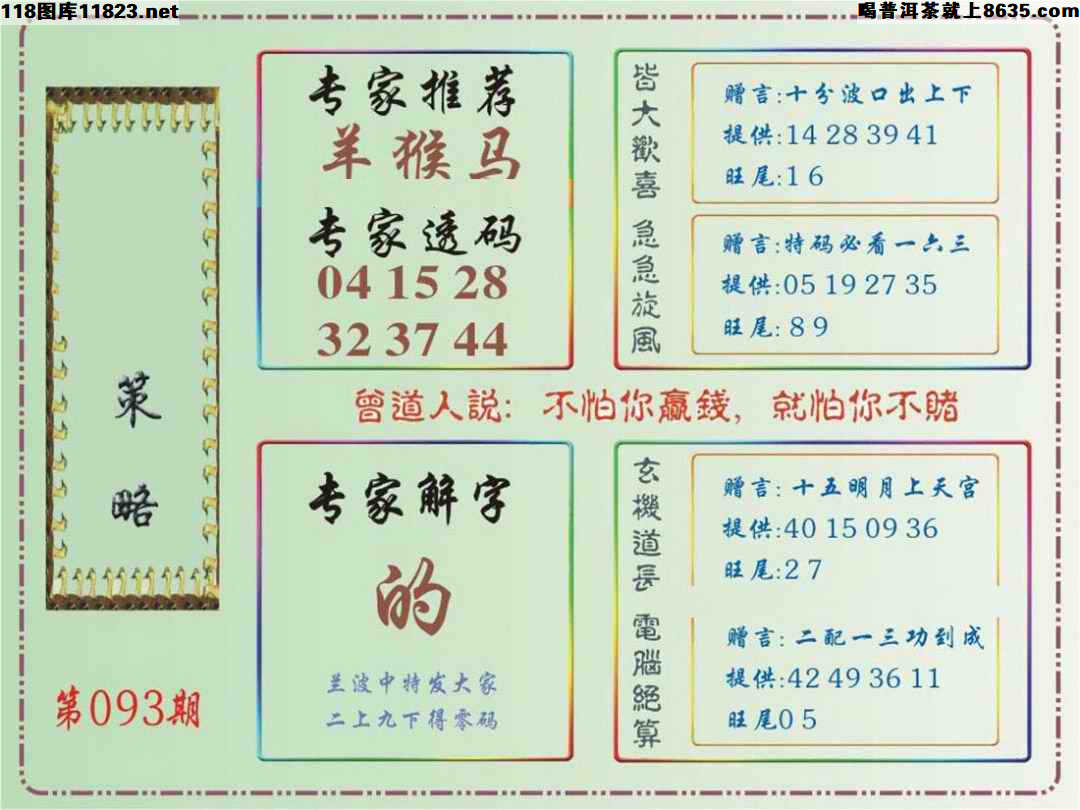 118图库11823.net
喝普洱茶就上8635.com
策略
第093期
专家推荐
羊猴马
专家透码
04 15 28
32 37 44
皆大歡喜
赠言:十分波口出上下
提供:14 28 39 41
旺尾:1 6
急急旋風
赠言:特码必看一六三
提供:05 19 27 35
旺尾:8 9
曾道人説: 不怕你贏錢, 就怕你不賭
专家解字
的
兰波中特发大家
二上九下得零码
玄機道長
赠言: 十五明月上天宫
提供:40 15 09 36
旺尾:2 7
電腦絕算
赠言: 二配一三功到成
提供:42 49 36 11
旺尾0 5